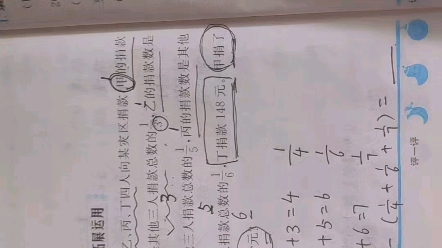 拓展运用
乙、丙、丁四人向某灾区捐款,甲的捐款
其他三人捐款总数的1/3,乙的捐款数是
三人捐款总数的1/5,丙的捐款数是其他
捐款总数的1/6,丁捐款148元。甲捐了
元
+3=4 1/4
+5=6 1/6
+6=7 1/7
=(1/4+1/6+1/7)=
评一评